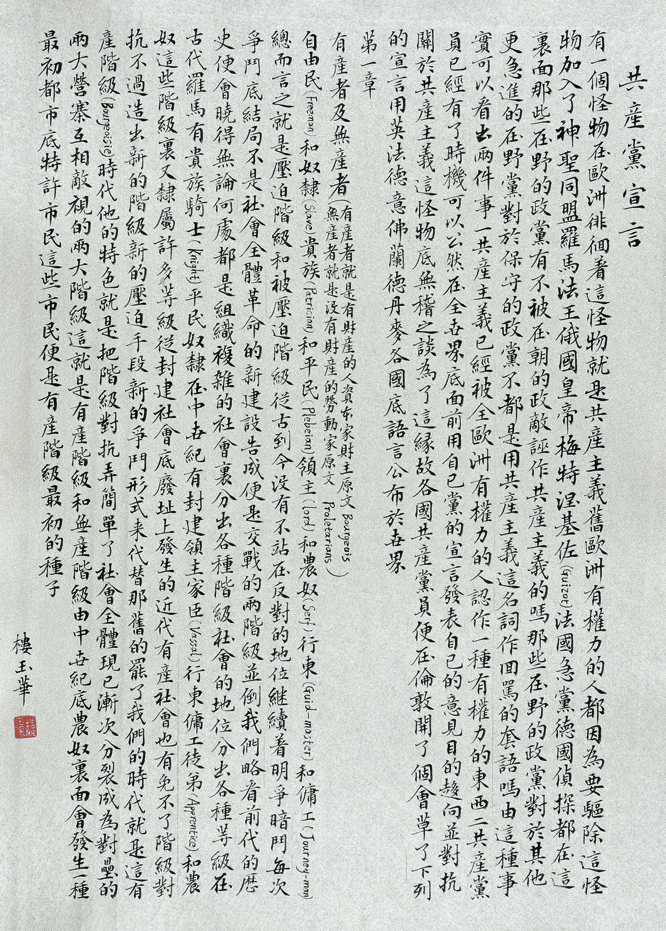 共產黨宣言
有一個怪物在歐洲徘徊着這怪物就是共產主義舊歐洲有權力的人都因為要驅除這怪
物加入了神聖同盟羅馬法王俄國皇帝梅特涅基佐(Guizot)法國急黨德國偵探都在這
裏面那些在野的政黨有不被在朝的政敵誣作共產主義的嗎那些在野的政黨對於其他
更急進的在野黨對於保守的政黨不都是用共產主義這名詞作回罵的套語嗎由這種事
實可以看出兩件事一共產主義已經被全歐洲有權力的人認作一種有權力的東西二共產黨
員已經有了時機可以公然在全世界底面前用自己黨的宣言發表自己的意見目的趨向並對抗
關於共產主義這怪物底無稽之談為了這緣故各國共產黨員便在倫敦開了個會草了下列
的宣言用英法德意佛蘭德丹麥各國底語言公布於世界
第一章
有產者及無產者(有產者就是有財產的人資本家財主原文Bourgeois
無產者就是沒有財產的勞動家原文 Proletarians)
自由民(Freeman)和奴隸(Slave)貴族(Patrician)和平民(Plebeian)領主(lord)和農奴(Serf)行東(Guild-master)和傭工(Journey-man)
總而言之就是壓迫階級和被壓迫階級從古到今没有不站在反對的地位繼續着明爭暗鬥每次
爭鬥底結局不是社會全體革命的新建設告成便是交戰的兩階級並倒我們略看前代的歷
史便會曉得無論何處都是組織複雜的社會裏分出各種階級社會的地位分出各種等級在
古代羅馬有貴族騎士(Knight)平民奴隸在中世紀有封建領主家臣(Vassal)行東傭工徒弟(Apprentice)和農
奴這些階級裏又隸屬許多等級從封建社會底廢址上發生的近代有產社會也有免不了階級對
抗不過造出新的階級新的壓迫手段新的爭鬥形式来代替那舊的罷了我們的時代就是這有
產階級(Bourgeoisie)時代他的特色就是把階級對抗弄簡單了社會全體現已漸次分裂成為對壘的
兩大營寨互相敵視的兩大階級這就是有產階級和無產階級由中世紀底農奴裏面會發生一種
最初都市底特許市民這些市民便是有產階級最初的種子
樓玉華